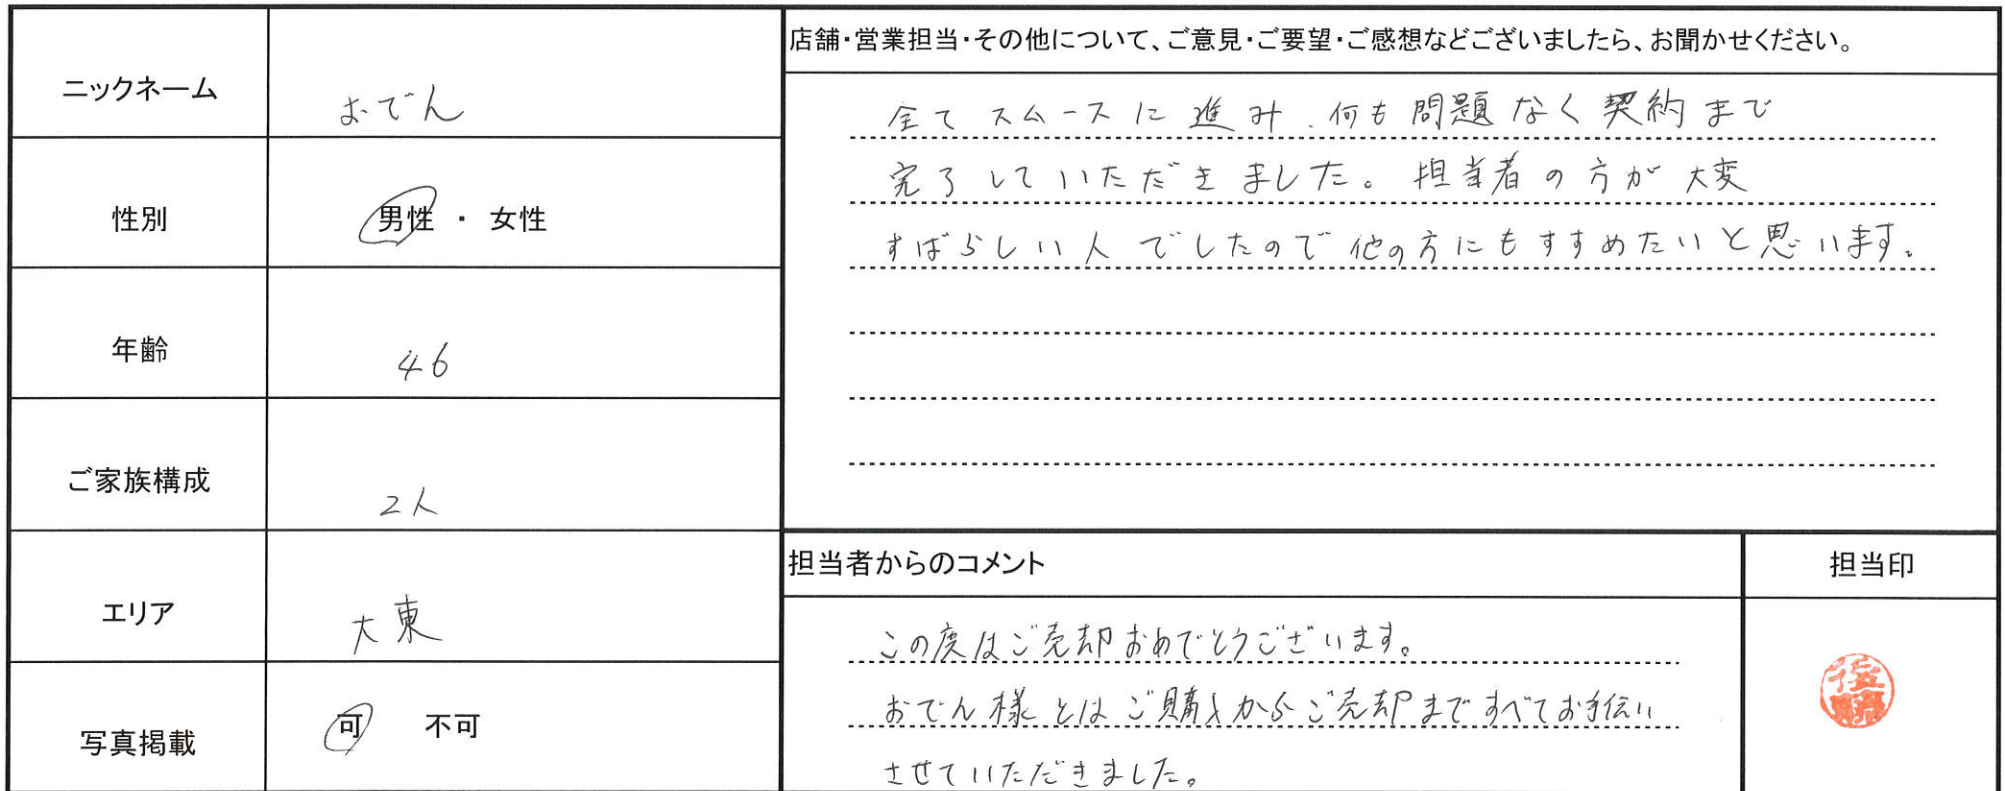 ニックネーム
おでん
性別
男性 ・ 女性
年齢
46
ご家族構成
2人
エリア
大東
写真掲載
可 不可
店舗・営業担当・その他について、ご意見・ご要望・ご感想などございましたら、お聞かせください。
全てスムースに進み、何も問題なく契約まで
完了していただきました。担当者の方が大変
すばらしい人でしたので他の方にもすすめたいと思います。
担当者からのコメント
この度はご売却おめでとうございます。
おでん様とはご購入からご売却まですべてお手伝い
させていただきました。
担当印